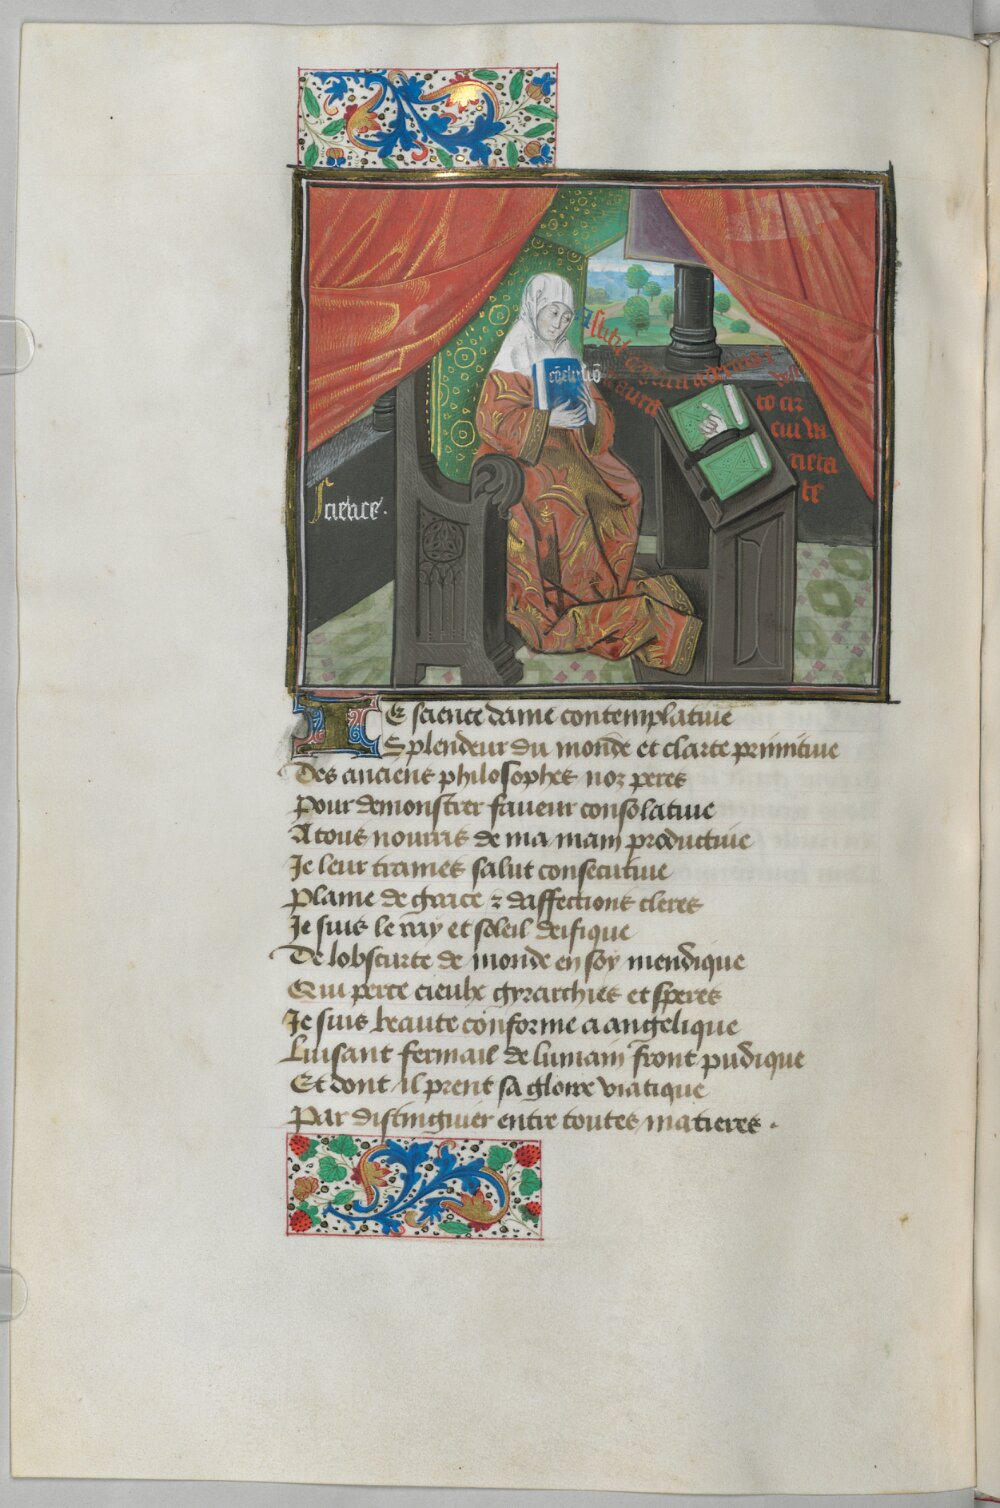 Science.
Je science dame contemplative
Splendeur du monde et clarte primitive
Des anciens philosophes noz peres
Pour demonstrer faveur consolative
A tous nourris de ma main productive
Je leur trames salut consecutive
Plaine de grace z daffections cleres
Je suis le ray et soleil deifique
De lobscurte de monde en soy mendique
Qui perce cieulx gyrarchies et speres
Je suis beaute conforme a angelique
Luisant fermail de lumain front pudique
Et dont il prent sa gloire viatique
Par distinguier entre toutes matieres .